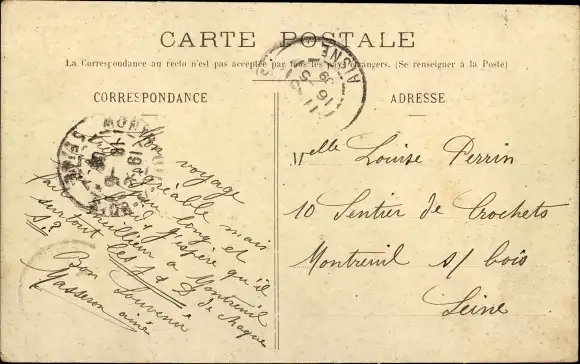 CARTE POSTALE
La Correspondance au recto n'est pas acceptée par tous les pays étrangers. (Se renseigner à la Poste)
CORRESPONDANCE
ADRESSE
Bon voyage
agréable mais
long et
j'espère qu'il
meilleur a Montreuil
surtout les S & D de chaque
Bon Souvenir
Masseron aimé
Melle Louise Perrin
10 Sentier de Crochets
Montreuil s/ bois
Seine
AISNE